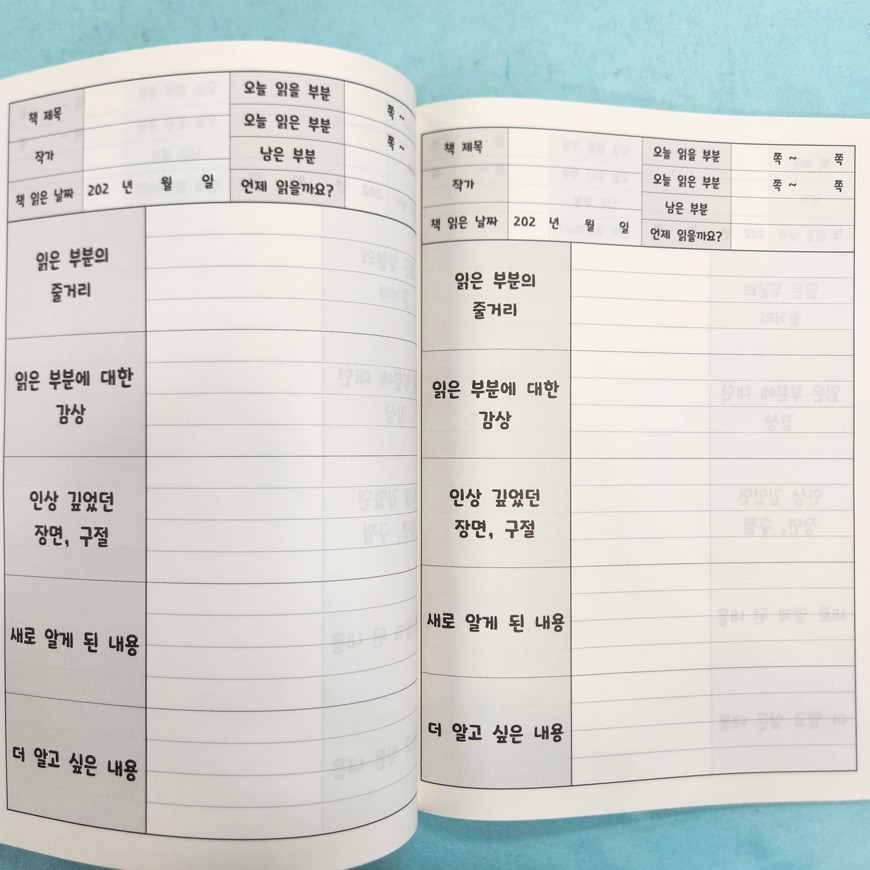 책 제목 오늘 읽을 부분 쪽 ~
작가 오늘 읽은 부분 쪽 ~
남은 부분
책 읽은 날짜 202 년 월 일 언제 읽을까요?
읽은 부분의
줄거리
읽은 부분에 대한
감상
인상 깊었던
장면, 구절
새로 알게 된 내용
더 알고 싶은 내용
책 제목 오늘 읽을 부분 쪽 ~ 쪽
작가 오늘 읽은 부분 쪽 ~ 쪽
남은 부분
책 읽은 날짜 202 년 월 일 언제 읽을까요?
읽은 부분의
줄거리
읽은 부분에 대한
감상
인상 깊었던
장면, 구절
새로 알게 된 내용
더 알고 싶은 내용